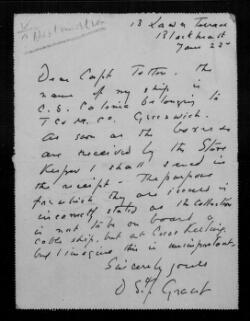 13 Lawn Terrace
Blackheath
June 22nd
Dear Capt Totton. the
name of my ship is
C.S. Colonia belonging to
T C & M. Co. Greenwich.
As soon as the boxes
are received by the Store
Keeper I shall send in
the receipt - The purpose
for which they are issued is
incorrectly stated as the collection
is not to be on board a
cable ship, but at Cocos Keeling.
but I imagine this is unimportant.
Sincerely yours
Grant